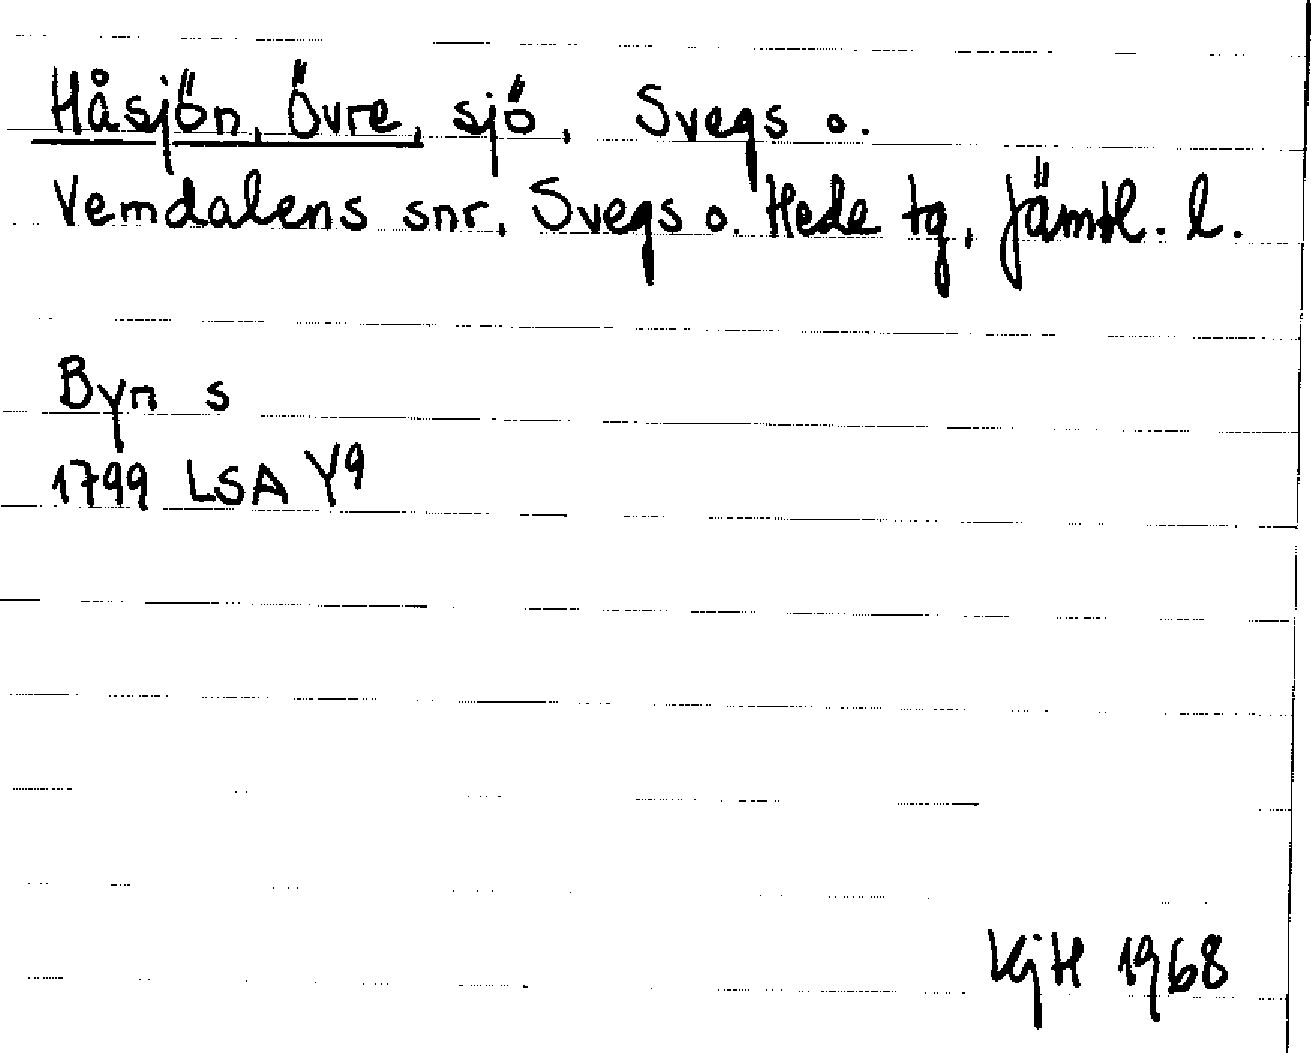 Håsjön, Övre, sjö, Svegs o.
Vemdalens snr, Svegs o. Hede tg, Jämtl. l.
Byn s
1799 LSA Y9
KjH 1968